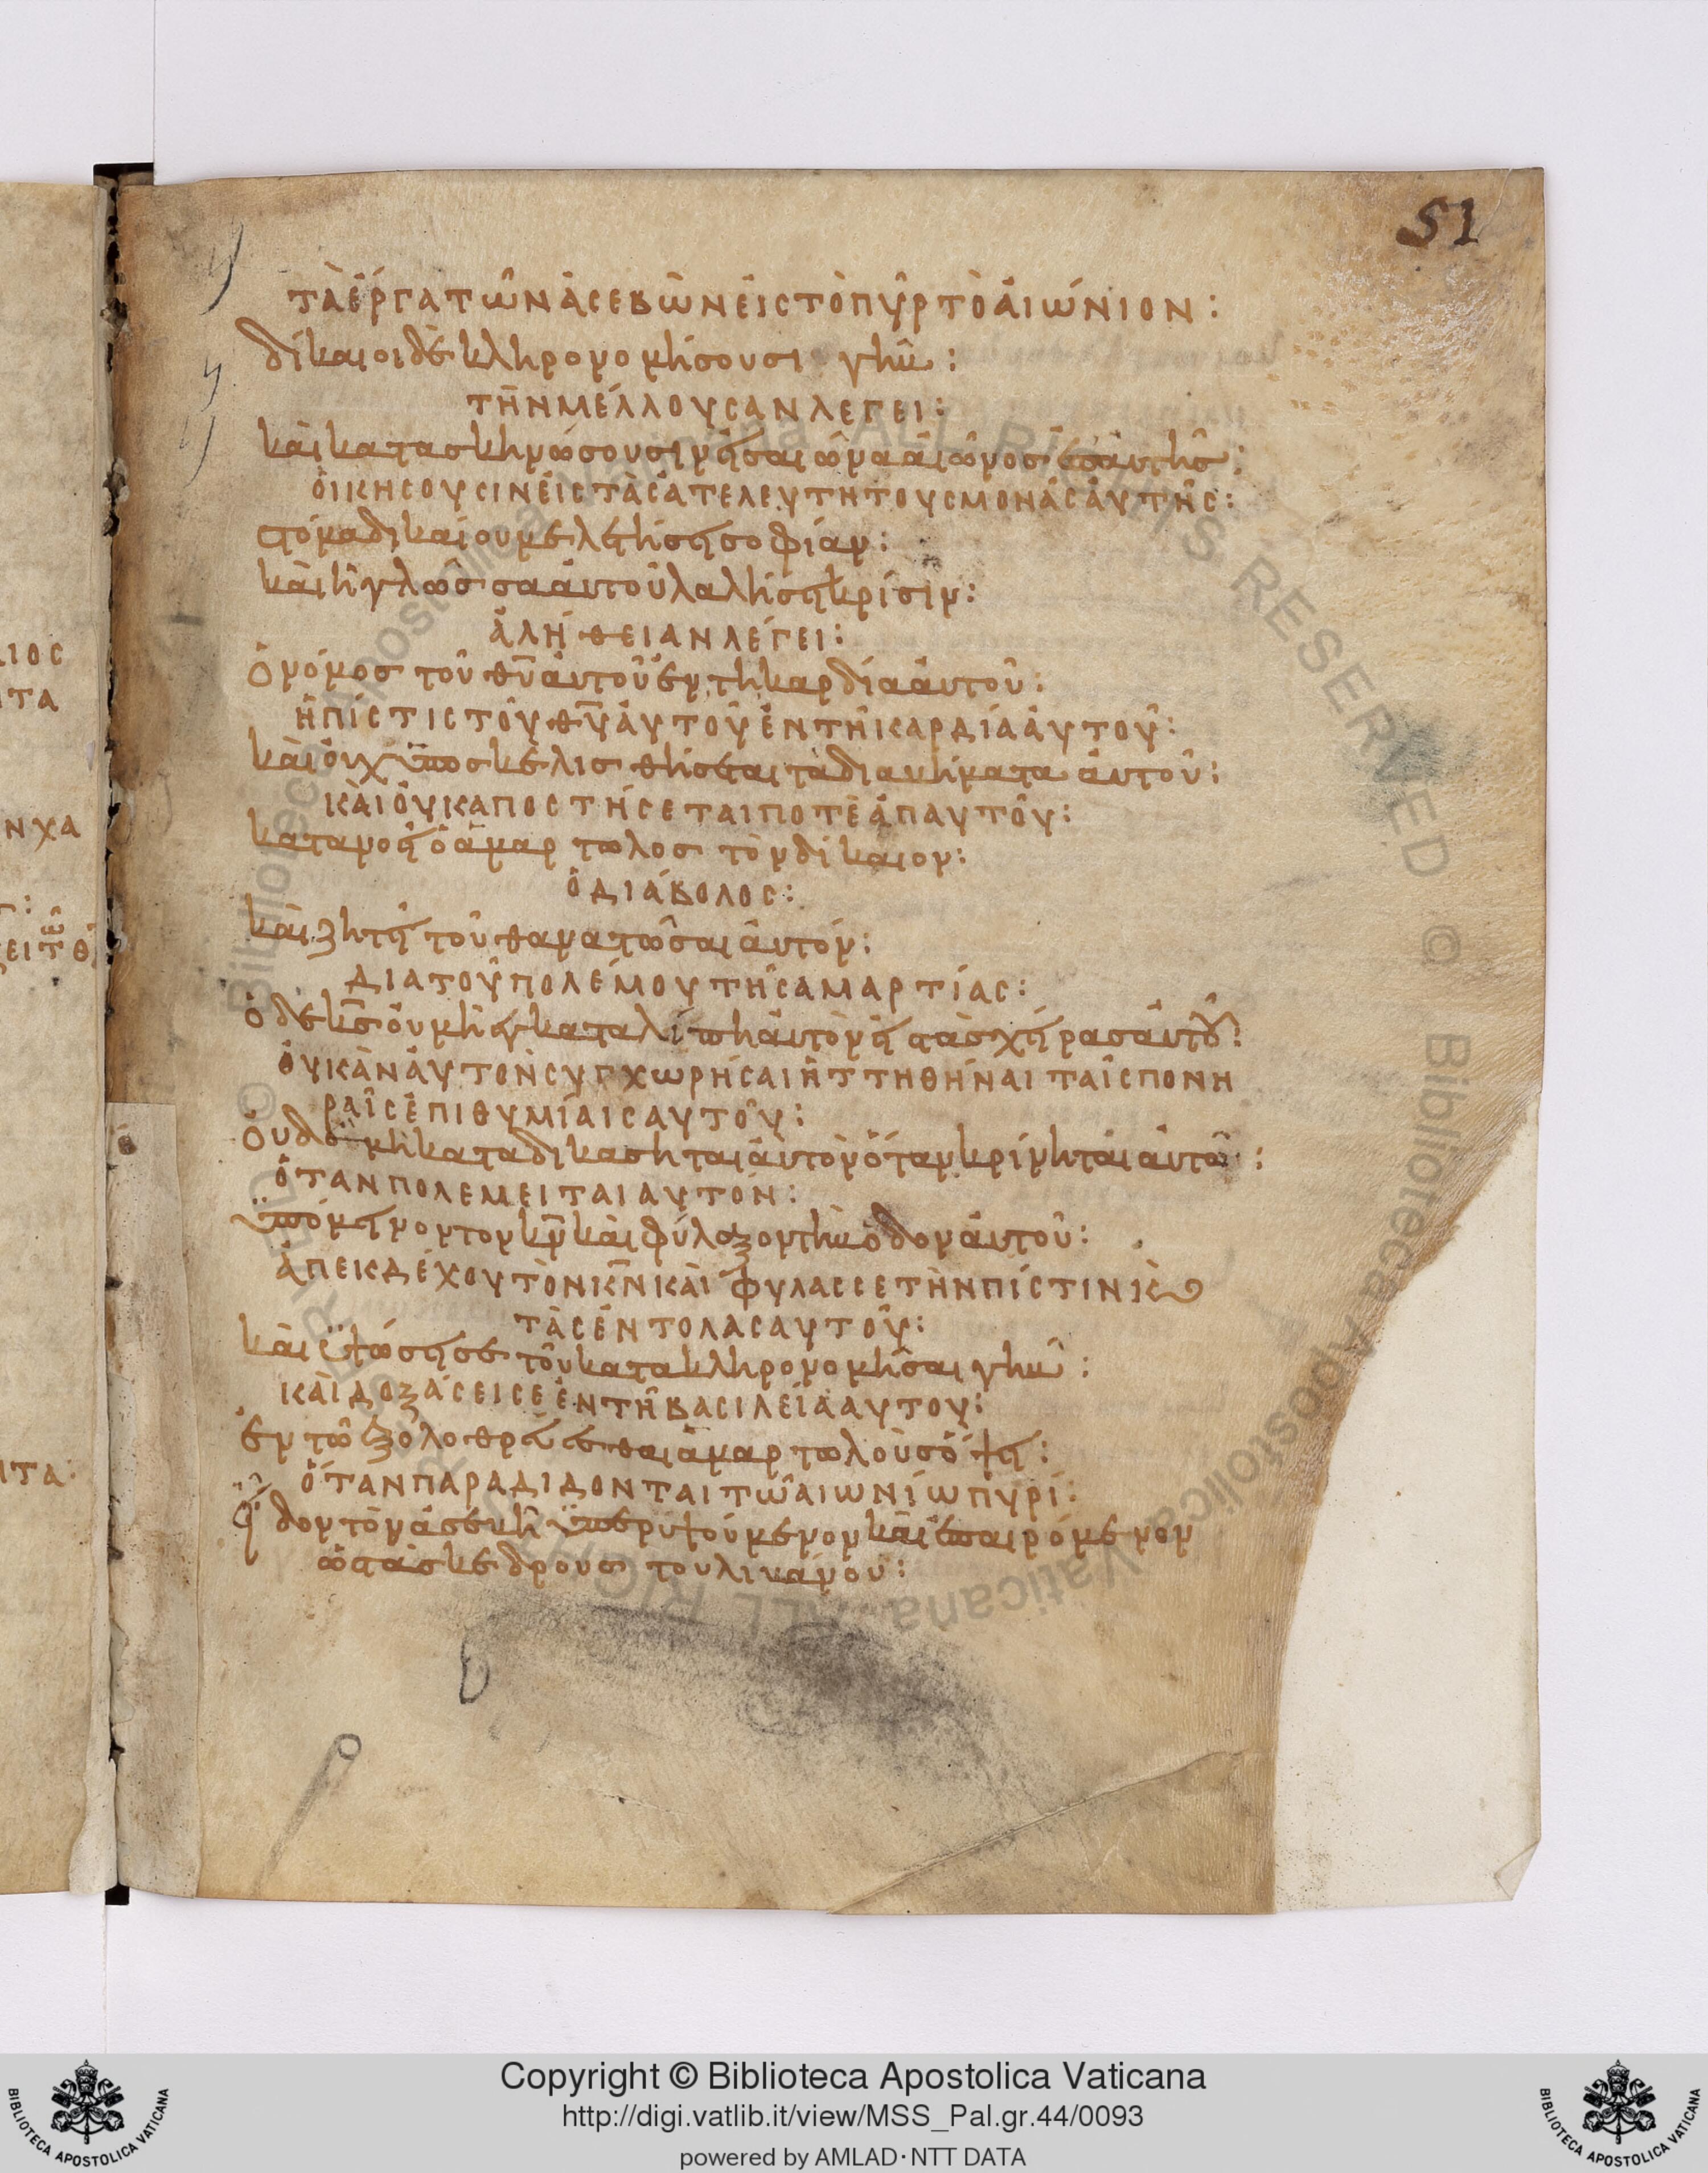 51
ΤᾺ ἜΡΓΑ ΤΩ͂Ν ἈCΕΒῶΝ ΕἸC ΤῸ ΠΥ͂Ρ ΤῸ ΑἸΏΝΙΟΝ :
δίκαιοι δὲ κληρονομήσουσι γῆν :
ΤῊΝ ΜΈΛΛΟΥCΑΝ ΛΕΓΕΙ :
καὶ κατασκηνώσουσιν εἰσ αἰῶνα αἰῶνοσ ἐπ αὐτῆσ :
ΟἸΚΗCΟΥCΙΝ ΕἸC ΤᾺC ἈΤΕΛΕΥΤΗΤΟΥC ΜΟΝᾺC ΑΥΤΗ͂C :
στόμα δικαίου μελετήσει σοφίαν :
καὶ ἡ γλῶσσα αὐτοῦ λαλήσει κρίσιν :
ἈΛΉΘΕΙΑΝ ΛΈΓΕΙ :
Ὁ νόμοσ τοῦ θυ αὐτοῦ ἐν τη καρδία αὐτοῦ :
Ἡ ΠΊCΤΙC ΤΟΥ͂ ΘΥ ΑΥΤΟΥ͂ ἘΝ ΤΗ͂ ΚΑΡΔΊΑ ΑΥΤΟΥ͂ :
καὶ οὐχ ὑποσκελισθήσεται τὰ διαβήματα αὐτοῦ :
ΚΑῚ ΟΥΚ ΑΠΟCΤΉCΕΤΑΙ ΠΟΤΕ ἈΠ ΑΥΤΟΥ͂ :
κατανοεῖ ὁ ἁμαρτωλοσ τὸν δίκαιον :
Ὁ ΔΙΆΒΟΛΟC :
καὶ ζητεῖ τοῦ θανατῶσαι αὐτόν :
ΔΙΑ ΤΟΥ͂ ΠΟΛΈΜΟΥ ΤΗ͂C ΑΜΑΡΤΊΑC :
Ὁ δε κσ οὐ μὴ ἐγκαταλίπη αὐτὸν εἰσ τὰσ χεῖρασ αὐτοῦ :
ΟΥΚ ἈΝ ΑΥΤΟΝ CΥΓΧΩΡΉCΑΙ ἩΤΤΗΘΗ͂ΝΑΙ ΤΑΙ͂C ΠΟΝΗ
ΡΑΙ͂C ἘΠΙΘΥΜΊΑΙC ΑΥΤΟΥ͂ :
Ὀυδὲ μὴ καταδικασηται αὐτὸν ὅταν κρίνηται αὐτῶ :
ὍΤΑΝ ΠΟΛΕΜΕΙΤΑΙ ΑΥΤΟΝ :
Ὑπόμεινον τον κν καὶ φύλαξον τὴν ὁδον αὐτοῦ :
ἈΠΕΚΔΈΧΟΥ ΤῸΝ ΚΝ ΚΑῚ ΦΥΛΑCCΕ ΤῊΝ ΠΊCΤΙΝ Κ(ΑΙ)
ΤᾺC ἘΝΤΟΛΑC ΑΥΤΟΥ͂ :
καὶ ὑψώσει σε τοῦ κατακληρονομῆσαι γῆν :
ΚΑῚ ΔΟΞΆCΕΙ CΕ ἘΝ ΤΗ͂ ΒΑCΙΛΕΊΑ ΑΥΤΟΥ :
ἐν τῶ ἐξολοθρεύεσθαι ἁμαρτωλοὺσ ὄψει :
ὍΤΑΝ ΠΑΡΑΔΙΔΟΝΤΑΙ ΤΩ͂ ΑΙΩΝΊΩ ΠΥΡΊ :
Εἶδον τὸν ἀσεβῆ ὑπερυψούμενον καὶ ἐπαιρόμενον
ὡσ τὰσ κεδρουσ του λιβάνου :
Copyright © Biblioteca Apostolica Vaticana
http://digi.vatlib.it/view/MSS_Pal.gr.44/0093
powered by AMLAD·NTT DATA
BIBLIOTECA APOSTOLICA VATICANA
BIBLIOTECA APOSTOLICA VATICANA